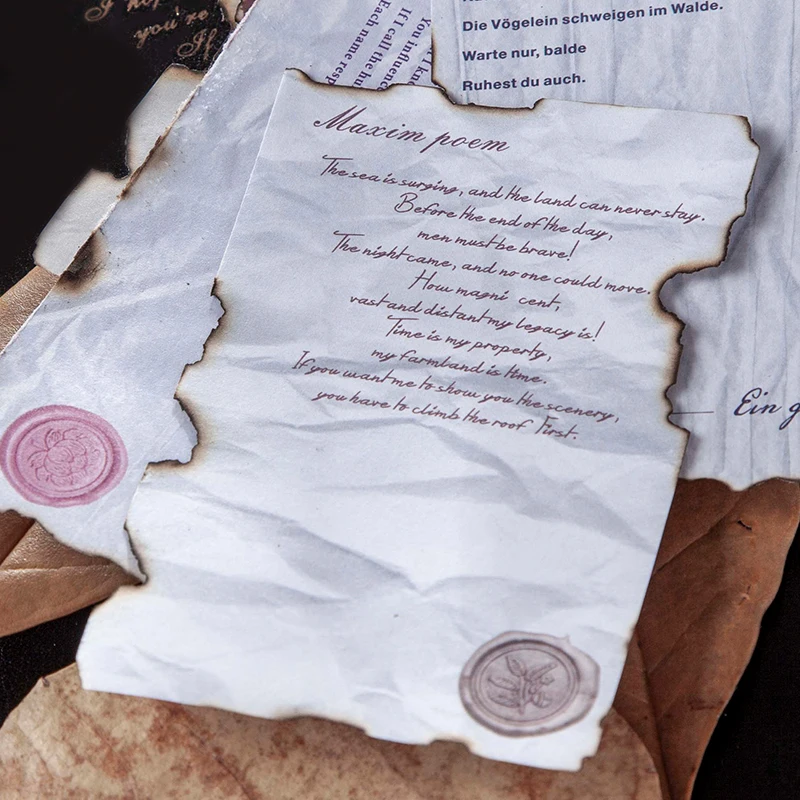 you're
If
Each name
If I call the
You
Die Vögelein schweigen im Walde.
Warte nur, balde
Ruhest du auch.
Maxim poem
The sea is surging, and the land can never stay.
Before the end of the day,
men must be brave!
The night came, and no one could move.
How magni cent,
vast and distant my legacy is!
Time is my property,
my farmland is time.
If you want me to show you the scenery,
you have to climb the roof first.
Ein